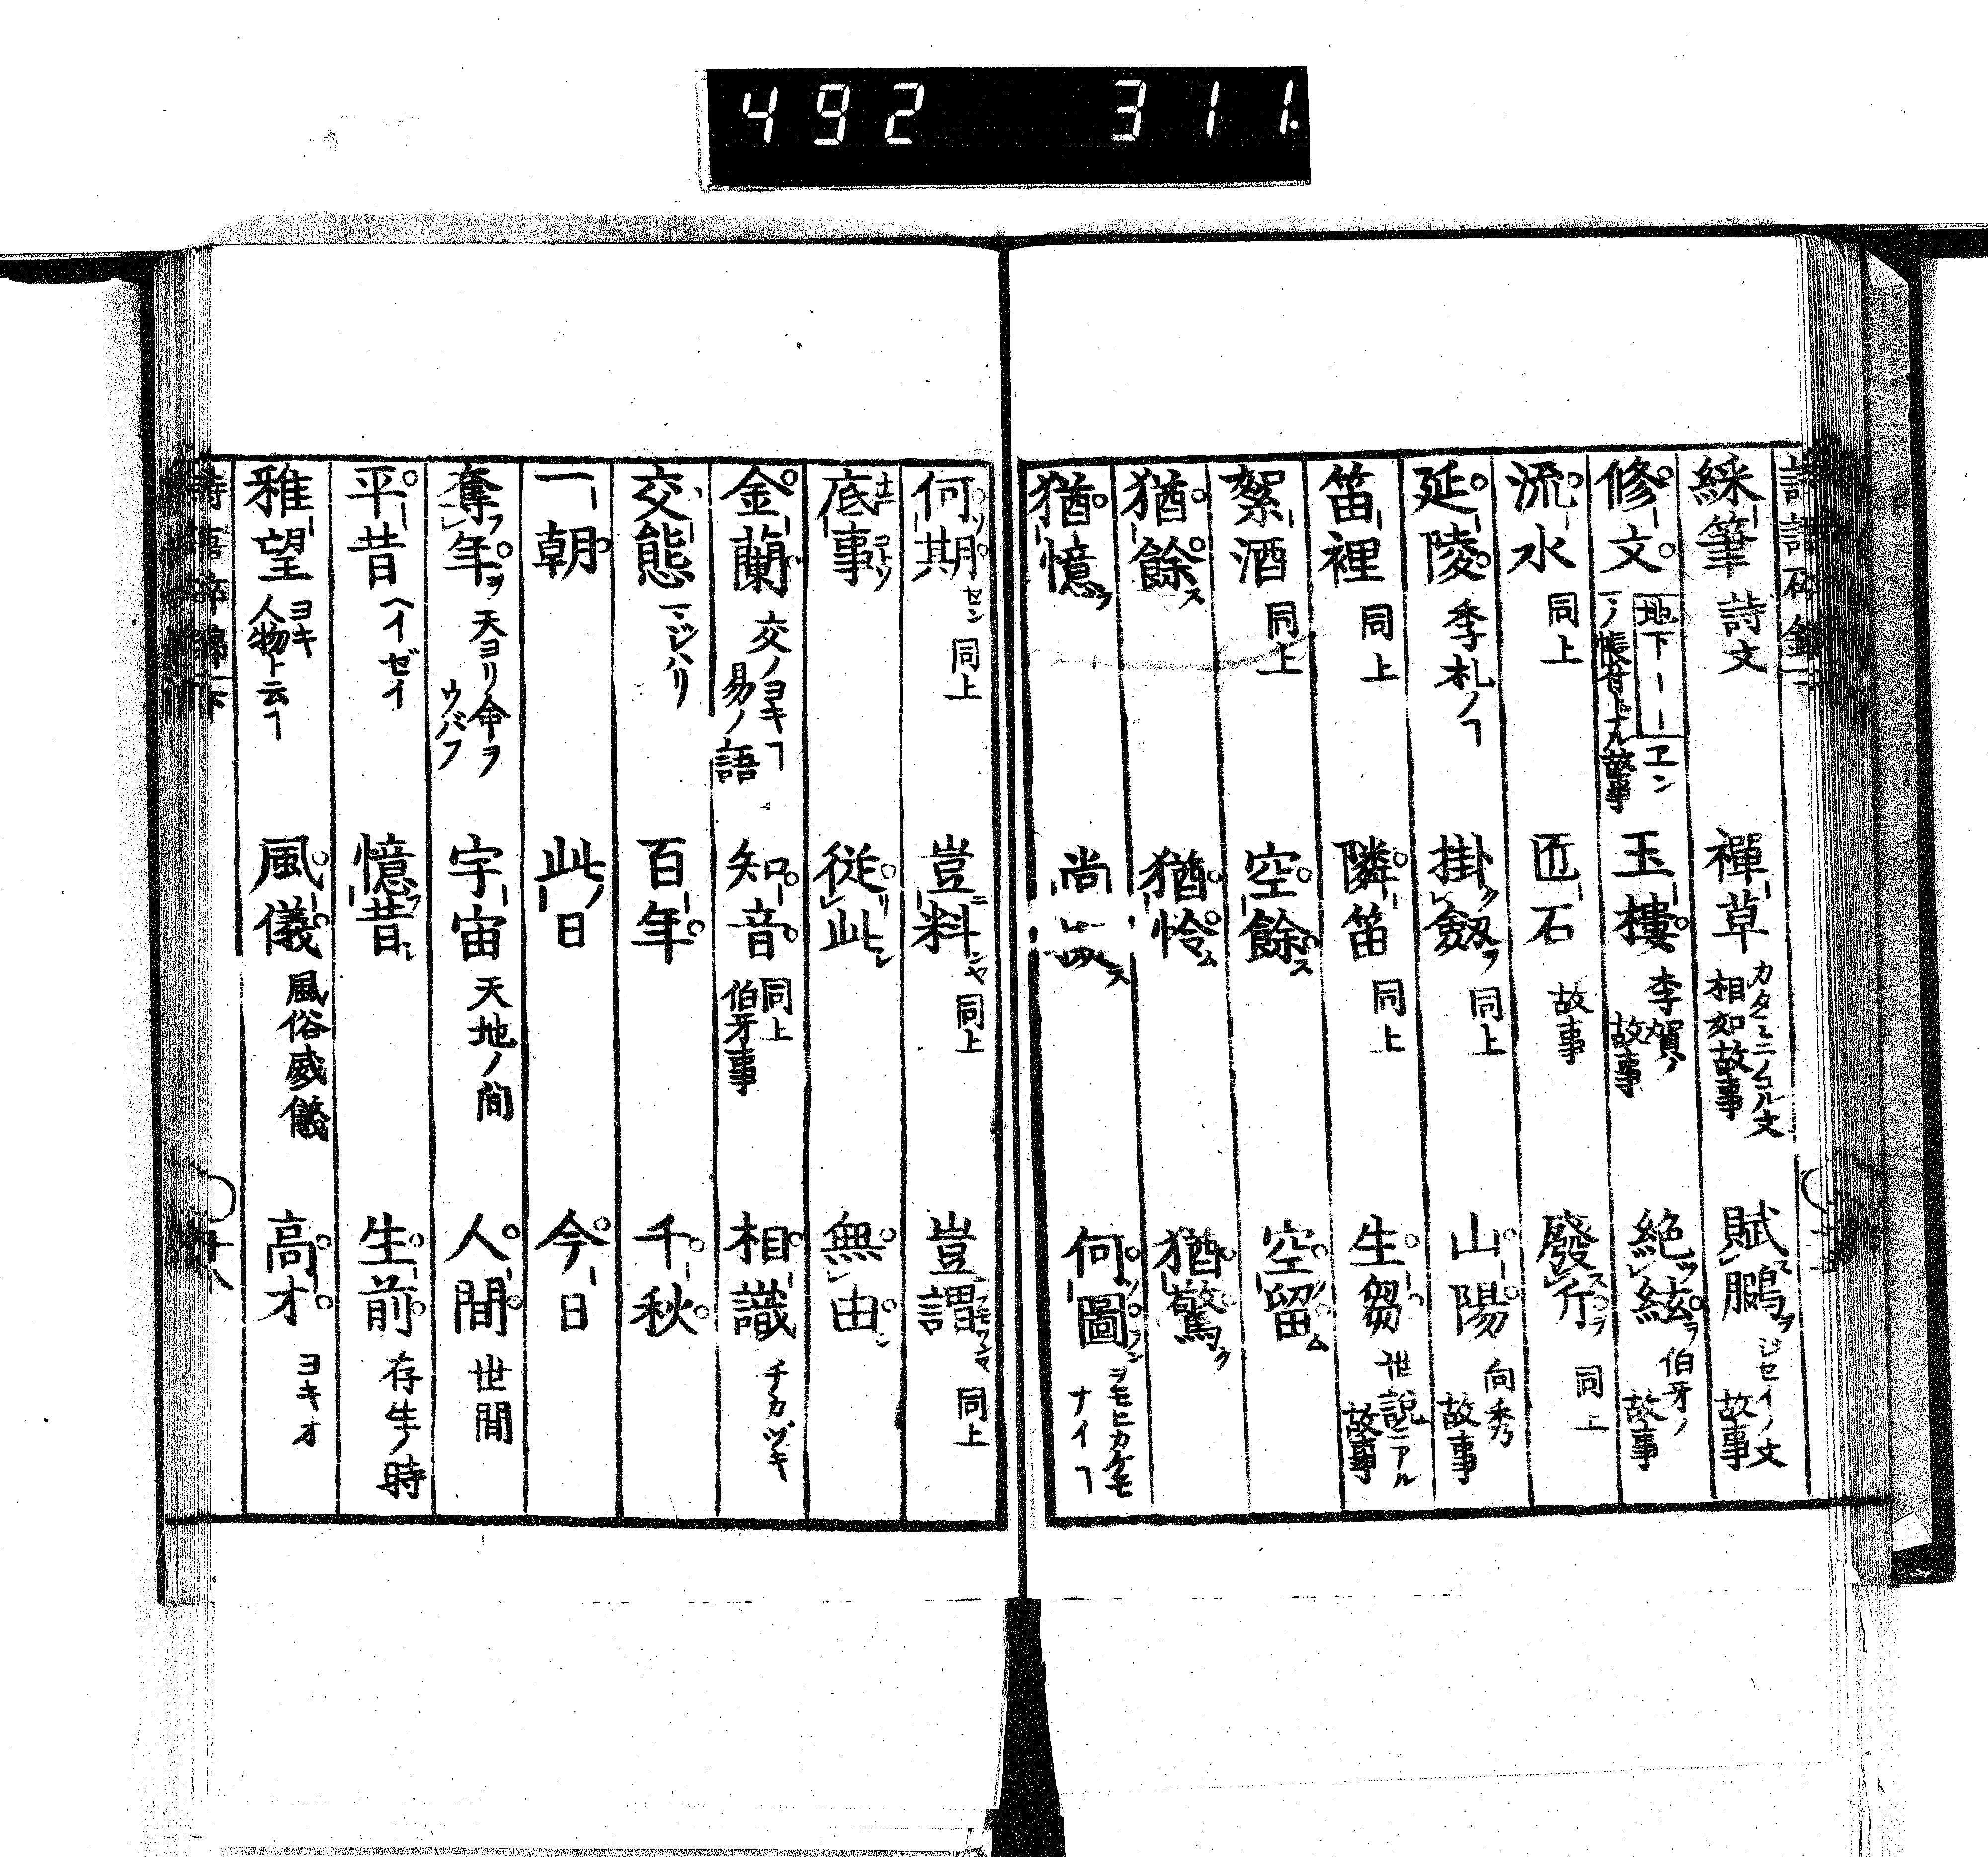 492 311.
綵筆 詩文 禪草 カタミニノコル文 相如故事 賦スレ鵩ヲ ジセイノ文 故事
修文 地下ーーエンマノ帳付トナル故事 玉樓 李賀ノ故事 絶ツレ絃ヲ 伯牙ノ故事
流水 同上 匠石 故事 廢スレ斤ヲ 同上
延陵 季札ノヿ 掛クレ劔ヲ 同上 山陽 向秀故事
笛裡 同上 隣笛 同上 生芻 世説ニアル故事
絮酒 同上 空餘ス 空留ム
猶餘ス 猶怜ム 猶驚ク
猶憶フ 尚 何圖 ヲモヒカケモナイヿ
何期セン 同上 豈料ンヤ 同上 豈謂 同上
底事 從リレ此 無レ由シ
金蘭 交ノヨキヿ 易ノ語 知音 同上 伯牙事 相識 チカヅキ
交態 マジハリ 百年 千秋
一朝 此ノ日 今日
奪フレ年ヲ 天ヨリ命ヲウバフ 宇宙 天地ノ間 人間 世間
平昔 ヘイゼイ 憶フ昔 生前 存生ノ時
雅望 ヨキ人物ト云ヿ 風儀 風俗威儀 高才 ヨキオ